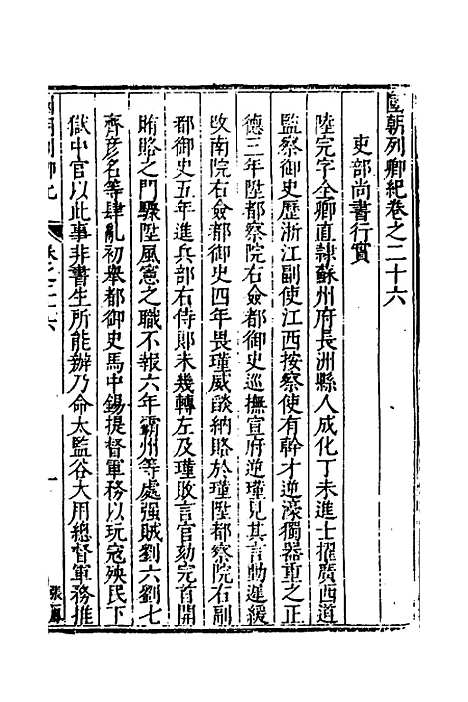 國朝列卿紀卷之二十六
吏部尚書行實
陸完字全卿直隸蘇州府長洲縣人成化丁未進士擢廣西道
監察御史歷浙江副使江西按察使有幹才逆濠獨器重之正
德三年陞都察院右僉都御史巡撫宣府逆瑾見其言動遲緩
改南院右僉都御史四年畏瑾威談納賂於瑾陞都察院右副
都御史五年進兵部右侍郎未幾轉左及瑾敗言官劾完首開
賄賂之門驟陞風憲之職不報六年霸州等處强賊劉六劉七
齊彥名等肆亂初舉都御史馬中錫提督軍務以玩寇殃民下
獄中官以此事非書生所能辦乃命太監谷大用總督軍務推
國朝列卿紀
卷之二十六
一